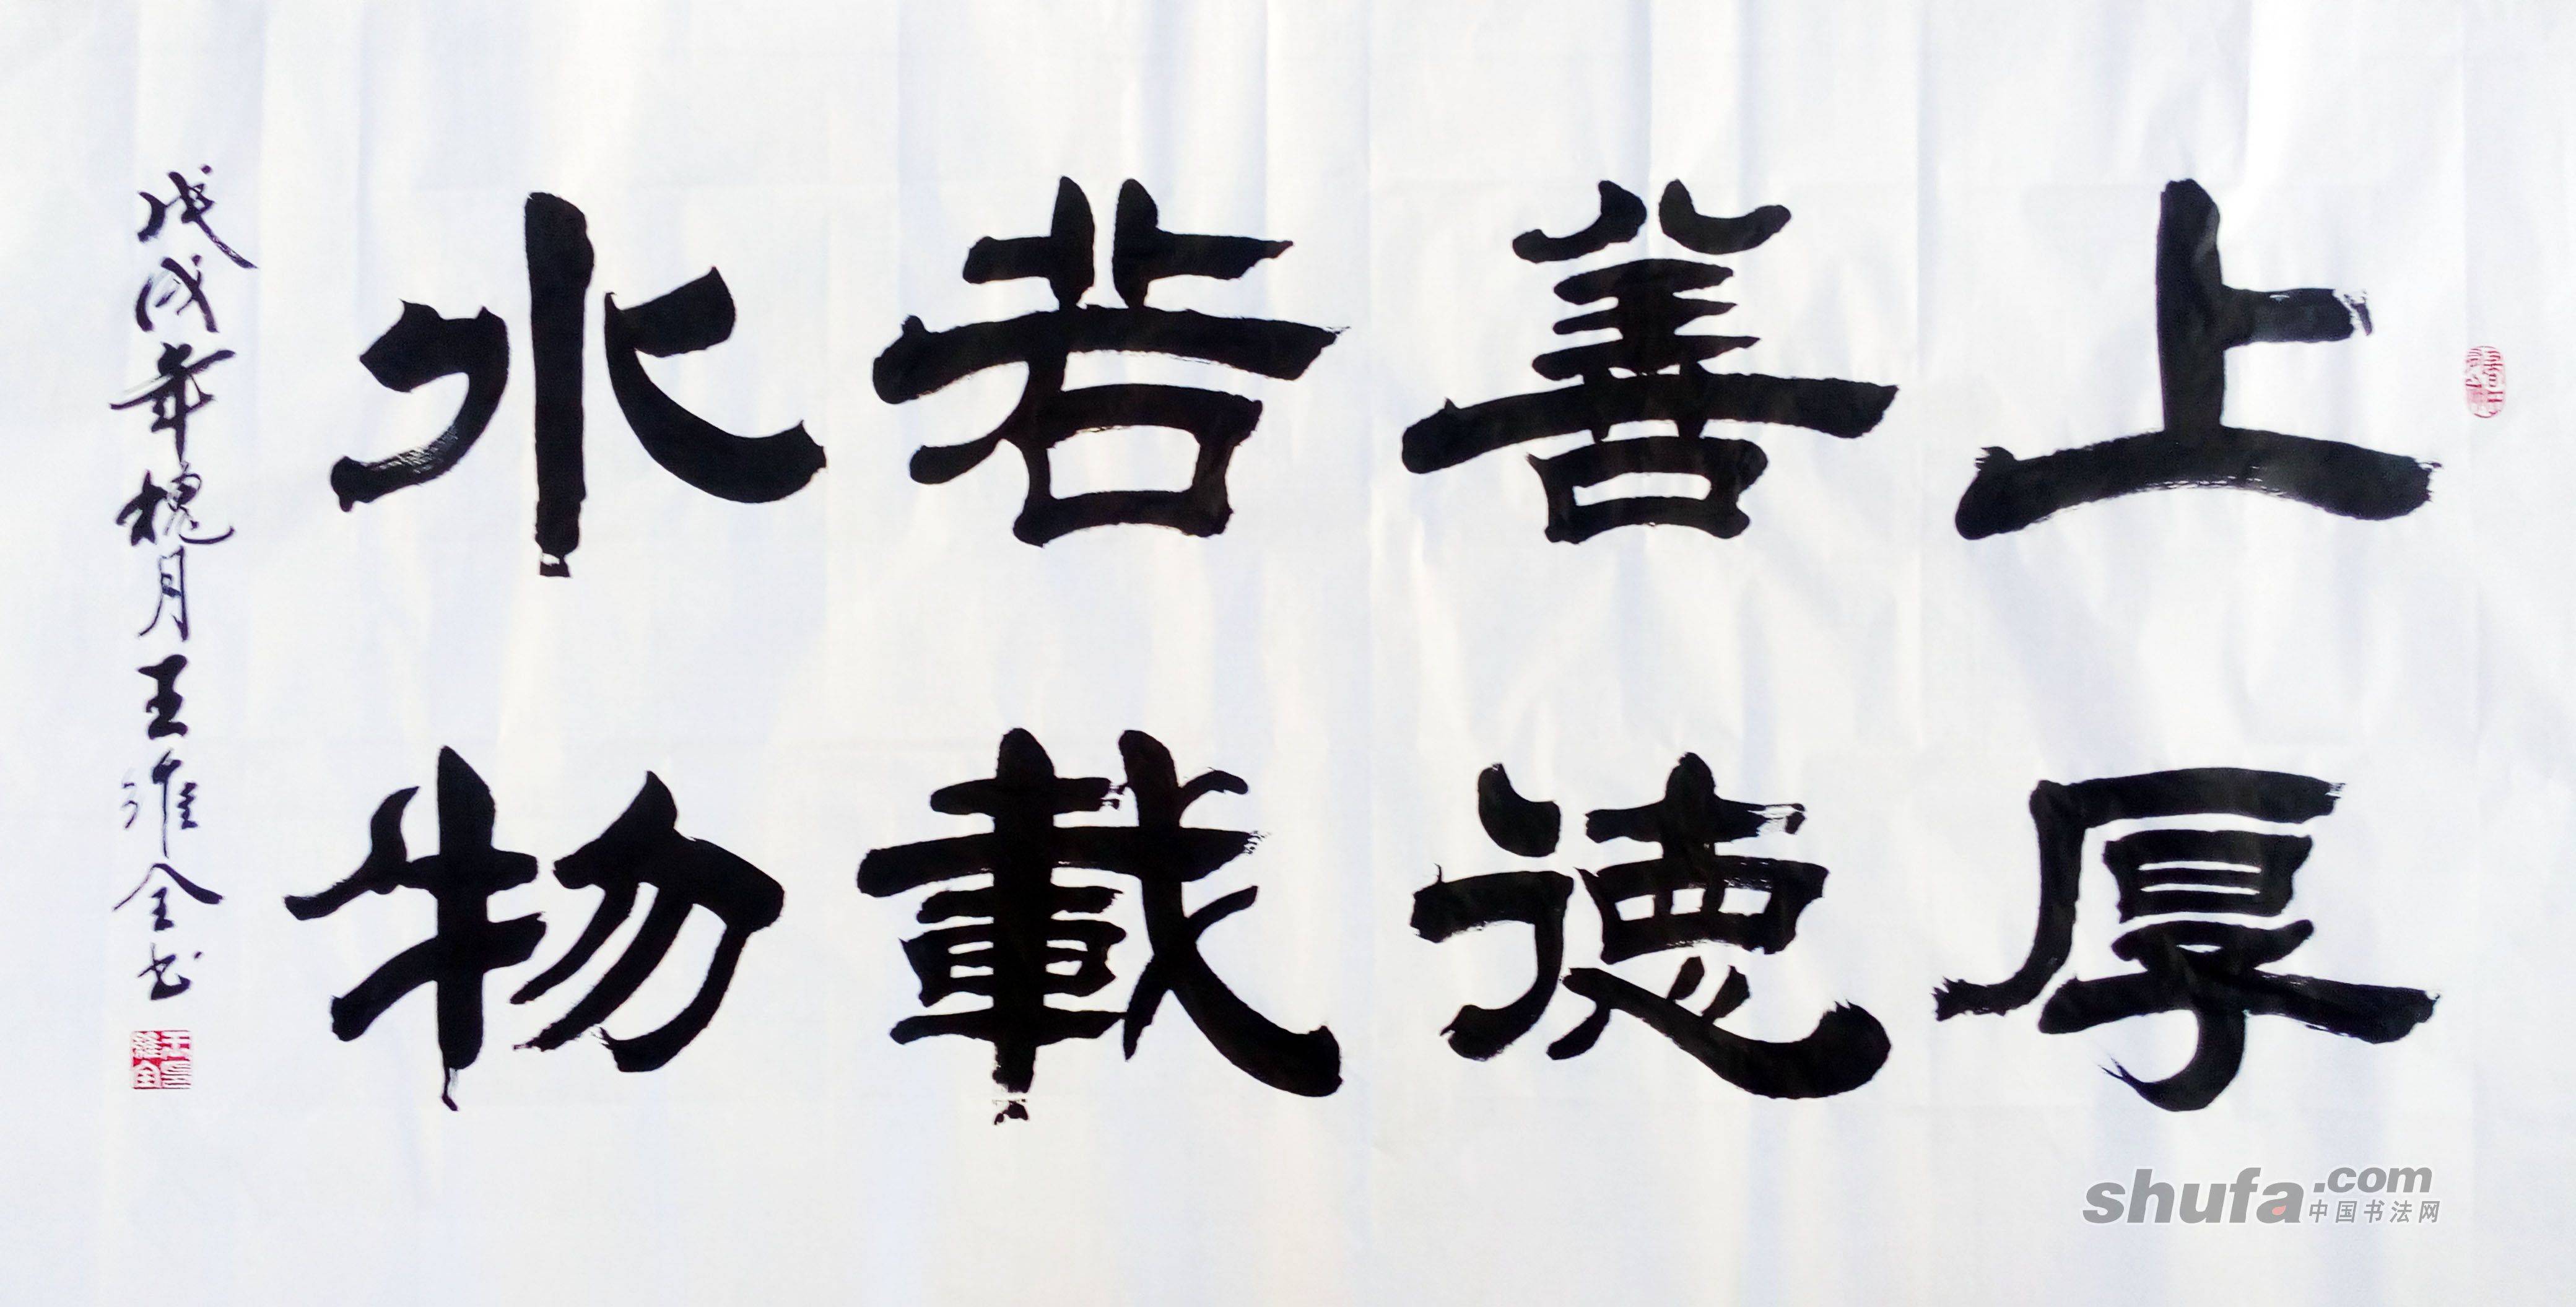 上善若水
厚德載物
戊戌年槐月王維全书
shufa.com
中国书法网